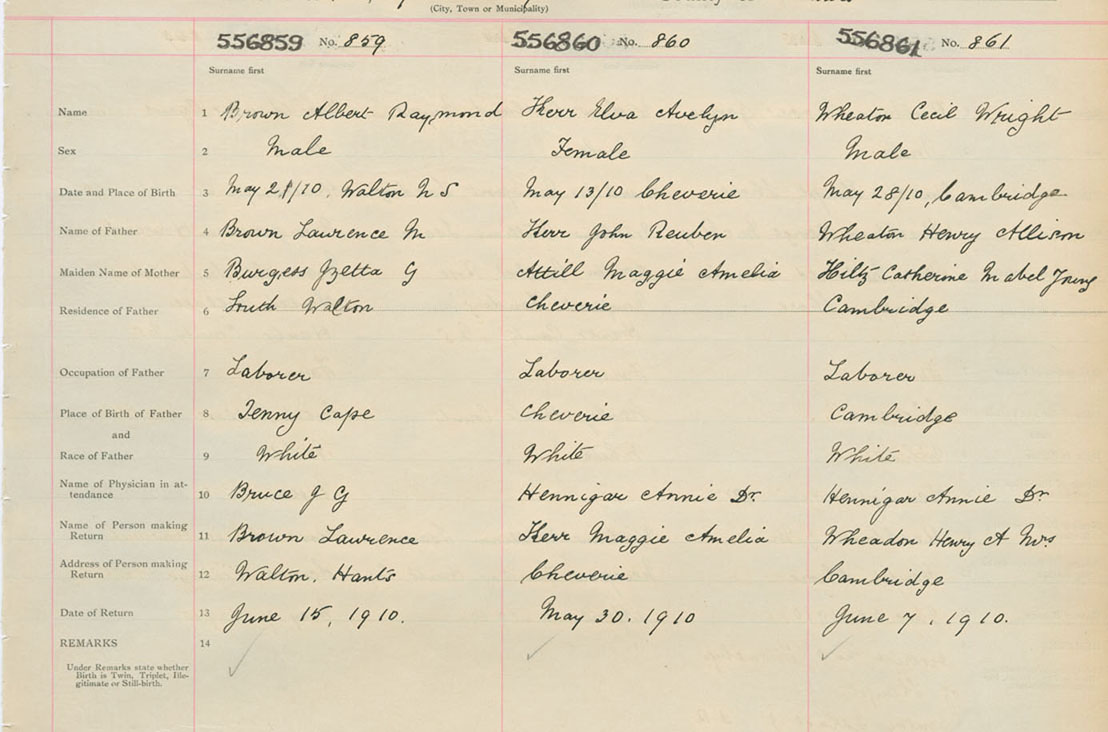 (City, Town or Municipality)
556859 No. 859 556860 No. 860 556861 No. 861
Surname first Surname first Surname first
Name 1 Brown Albert Raymond Kerr Elva Avelyn Wheaton Cecil Wright
Sex 2 Male Female Male
Date and Place of Birth 3 May /10. Walton N S May 13/10 Cheverie May 28/10, Cambridge
Name of Father 4 Brown Lawrence M Kerr John Reuben Wheaton Henry Allison
Maiden Name of Mother 5 Burgess Izetta G Attill Maggie Amelia Hiltz Catherine Mabel Young
Residence of Father 6 South Walton Cheverie Cambridge
Occupation of Father 7 Laborer Laborer Laborer
Place of Birth of Father 8 Tenny Cape Cheverie Cambridge
and
Race of Father 9 White White White
Name of Physician in at-
tendance 10 Bruce J G Hennigar Annie Dr. Hennigar Annie Dr
Name of Person making
Return 11 Brown Lawrence Kerr Maggie Amelia Wheadon Henry A Mrs
Address of Person making
Return 12 Walton. Hants Cheverie Cambridge
Date of Return 13 June 15, 1910. May 30. 1910 June 7, 1910.
REMARKS 14
Under Remarks state whether
Birth is Twin, Triplet, Ille-
gitimate or Still-birth.